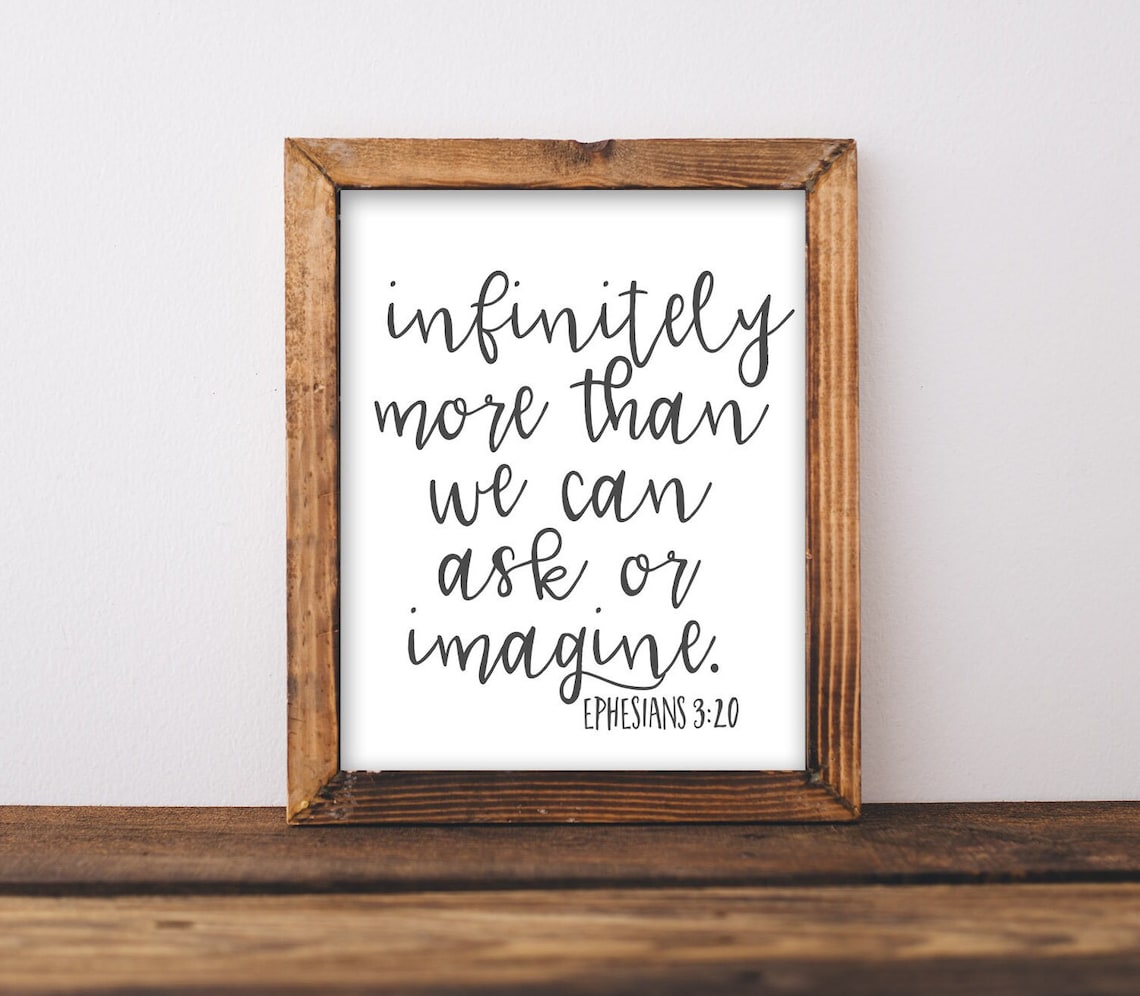 infinitely
more than
we can
ask or
imagine.
EPHESIANS 3:20